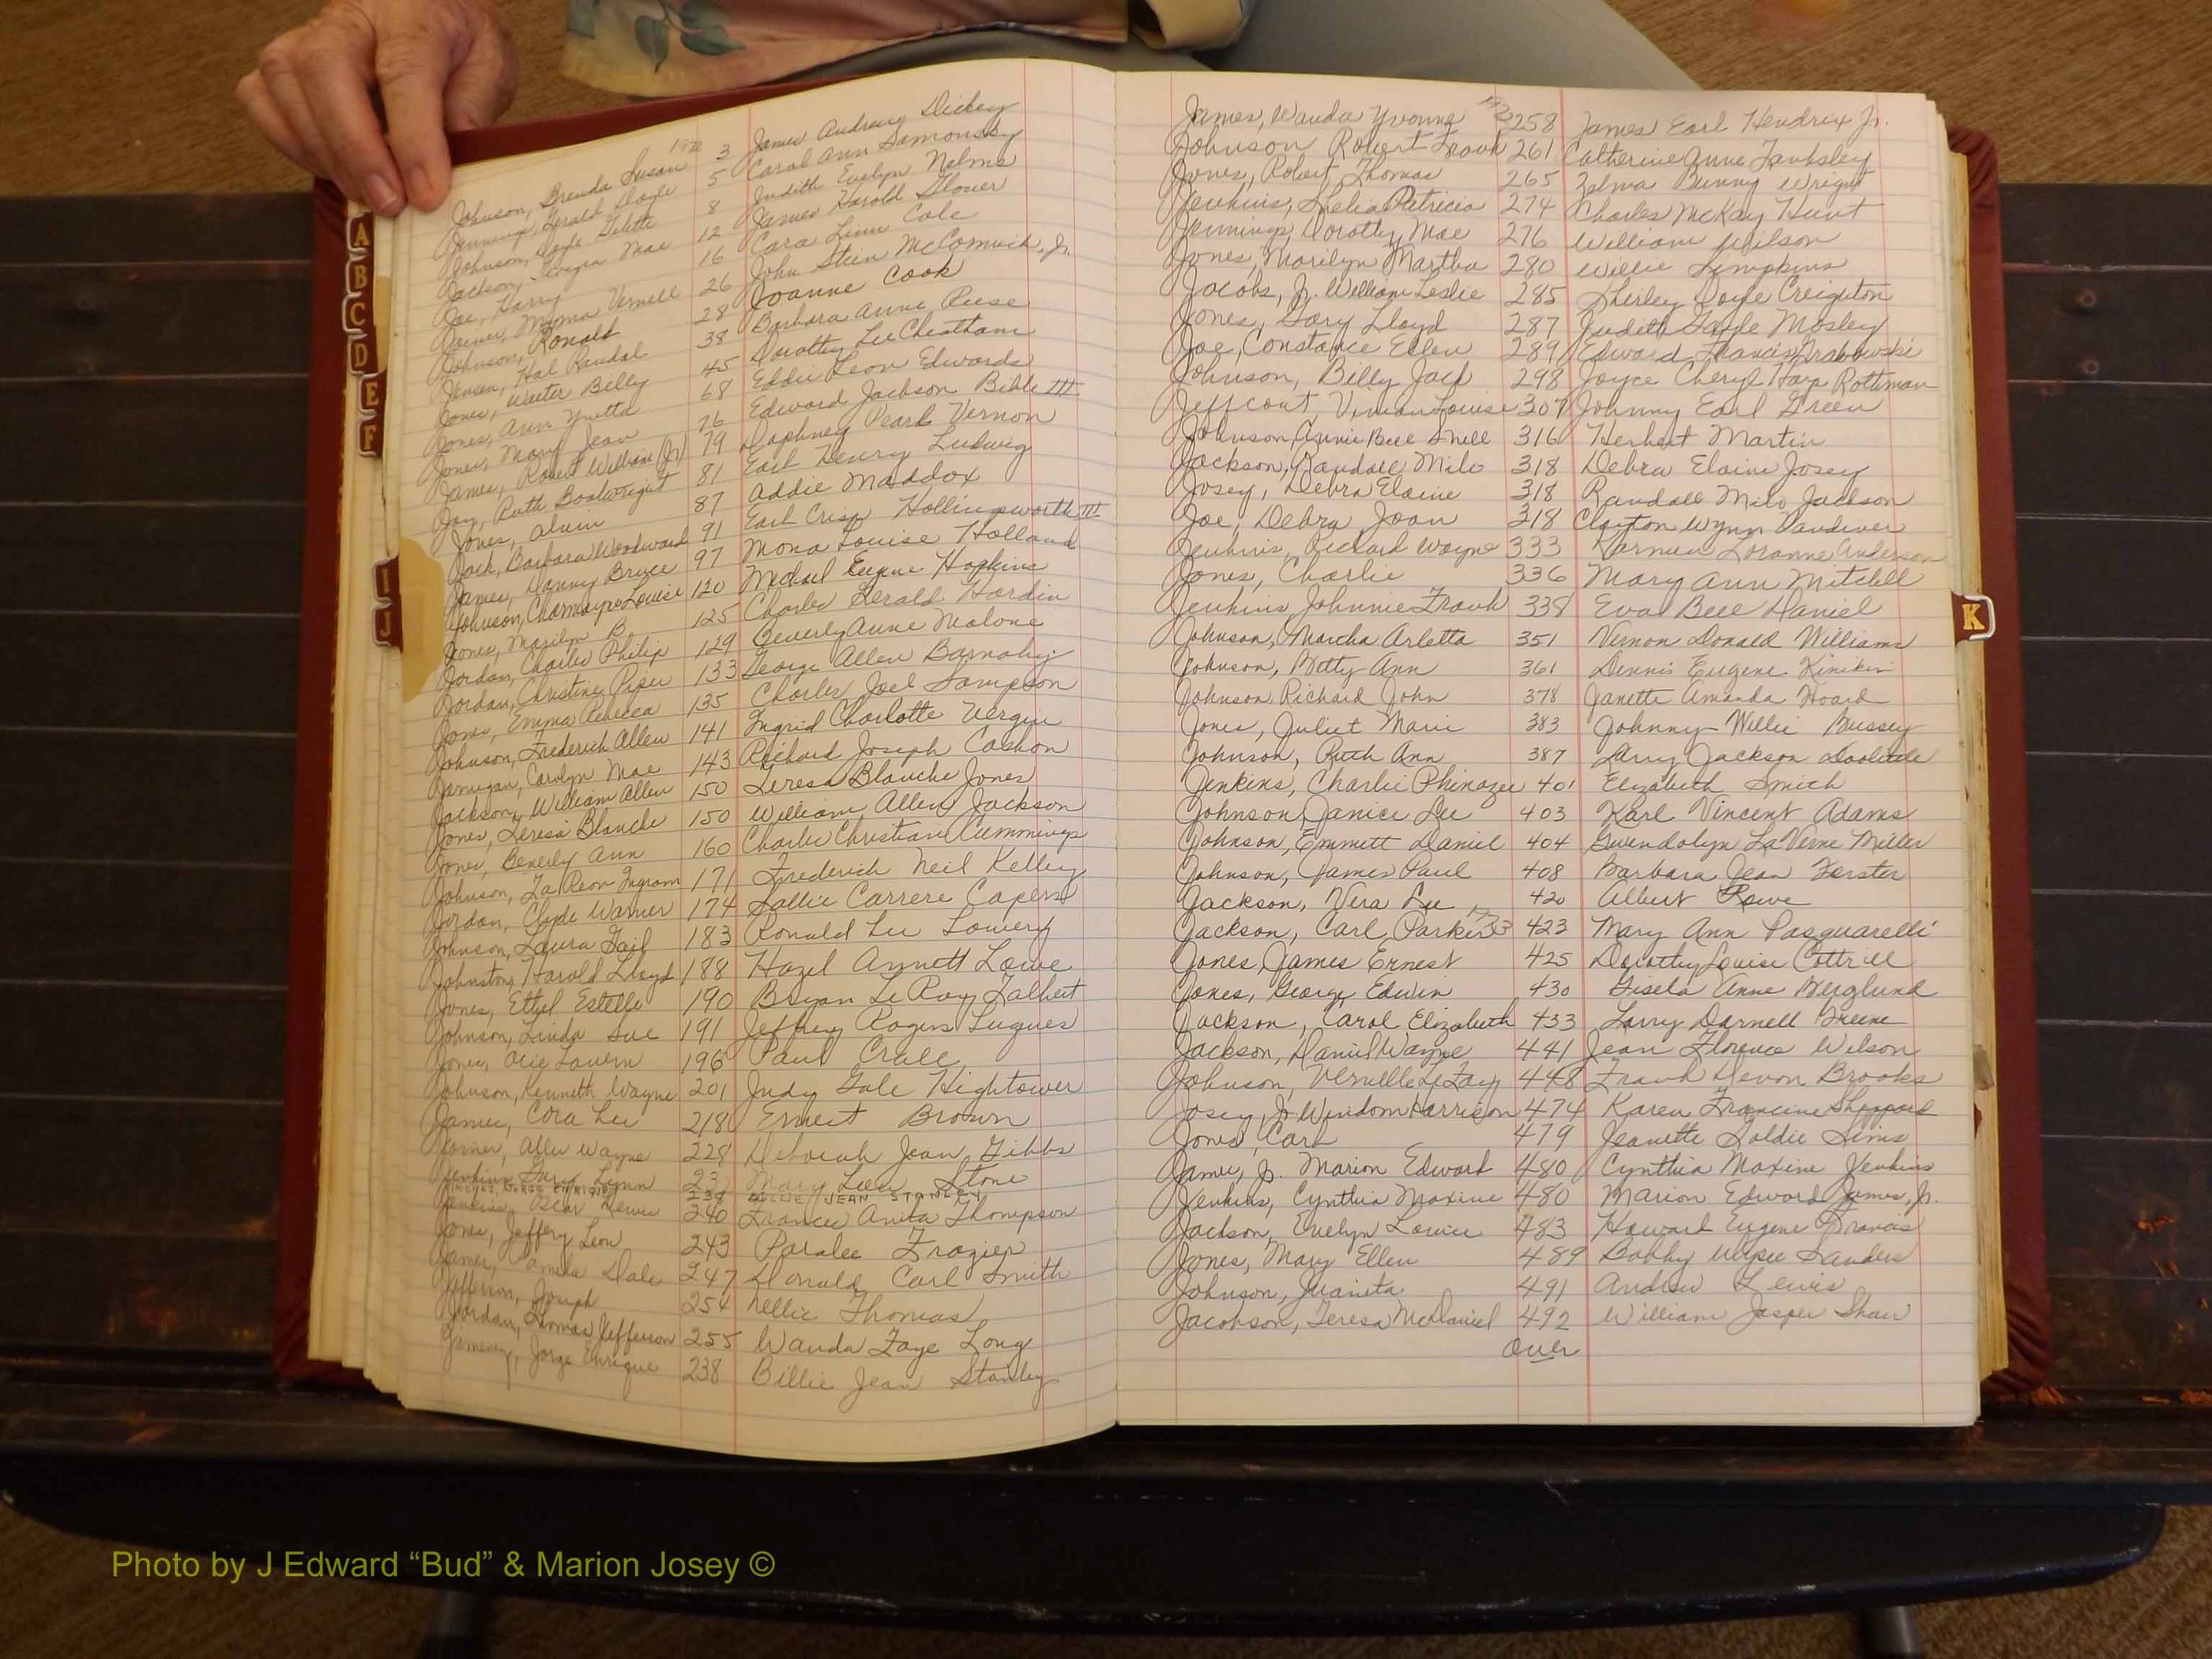 1972
Johnson, Brenda Susan 3 James Andrew Dickey
Jennings, Gerald Doyle 5 Carol Ann Samonsky
Johnson, Gayle Delette 8 Judith Evelyn Nelms
Jackson, Mae 12 James Harold Glover
Joe, Harry 16 Cara Linn Cole
Joiner, Myrna Vernell 26 John Steen McCormick, Jr.
Johnson, Ronald 28 Joanne Cook
Jensen, Hal Randal 38 Barbara Anne Reese
Jones, Walter Billy 45 Dorothy Lee Cheatham
Jones, Ann Yvetta 68 Eddie Leon Edwards
Jones, Mary Jean 76 Edward Jackson Bible III
James, Robert William (Jr) 79 Daphney Pearl Vernon
Joy, Ruth Boatwright 81 Earl Henry Ludwig
Jones, Alvin 87 Addie Maddox
Jack, Barbara Woodward 91 Earl Crisp Hollingsworth III
James, Danny Bruce 97 Mona Louise Holland
Johnson, Charmayne Louise 120 Michael Eugene Hopkins
Jones, Marilyn B 125 Charles Gerald Hardin
Jordan, Charles Philip 129 Beverly Anne Malone
Jordan, Christine Piper 133 George Allen Barnaby
Jones, Emma Rebecca 135 Charles Joel Sampson
Johnson, Frederich Allen 141 Ingrid Charlotte Vergin
Jarnigan, Carolyn Mae 143 Richard Joseph Cashon
Jackson, William Allen 150 Teresa Blanche Jones
Jones, Teresa Blanche 150 William Allen Jackson
Jones, Beverly Ann 160 Charlie Christian Cummings
Johnson, La Reon Ingram 171 Frederich Neil Kelley
Jordan, Clyde Warner 174 Sallie Carrere Capers
Johnson, Laura Gail 183 Ronald Lee Lowery
Johnston, Harold Lloyd 188 Hazel Annett Lowe
Jones, Ethel Estelle 190 Bryan LeRoy Talbert
Johnson, Linda Sue 191 Jeffrey Rogers Sugues
Jones, Ocie Lavern 196 Paul Crale
Johnson, Kenneth Wayne 201 Judy Gale Hightower
James, Cora Lee 218 Ernest Brown
Joiner, Allen Wayne 228 Deborah Jean Gibbs
Jenkins, Lynn 23 Mary Stone
JIMENEZ, JORGE ENRIQUE 238 BILLIE JEAN STANLEY
Jenkins, Oscar Lewis 240 Frances Anita Thompson
Jones, Jeffery Leon 243 Paralee Frazier
James, Pamela Dale 247 Donald Carl Smith
Jefferson, Joseph 254 Nellie Thomas
Jordan, Thomas Jefferson 255 Wanda Faye Long
Jimenez, Jorge Enrique 238 Billie Jean Stanley
James, Wanda Yvonne 258 James Earl Hendrix Jr.
Johnson Robert Frank 261 Catherine Anne Tanksley
Jones, Robert Thomas 265 Zelma Bunny Wright
Jenkins, Shelia Patricia 274 Charles McKay Hunt
Jennings, Dorothy Mae 276 William Wilson
Jones, Marilyn Martha 280 Willie Simpkins
Jacobs, Jr. William Leslie 285 Shirley Doye Creighton
Jones, Gary Lloyd 287 Judith Gayle Mosley
Joe, Constance Ellen 289 Edward Francis Grabowski
Johnson, Billy Jack 298 Joyce Cheryl Harp Rothman
Jeffcoat, Vivian Louise 307 Johnny Earl Green
Johnson, Annie Bell Snell 316 Herbert Martin
Jackson, Randall Milo 318 Debra Elaine Josey
Josey, Debra Elaine 318 Randall Milo Jackson
Joe, Debra Joan 318 Clayton Wynn Vandiver
Jenkins, Richard Wayne 333 Karmen Loranne Anderson
Jones, Charlie 336 Mary Ann Mitchell
Jenkins Johnnie Frank 338 Eva Bell Daniel
Johnson, Marcha Arletta 351 Vernon Donald Williams
Johnson, Betty Ann 361 Dennis Eugene Kinikin
Johnson Richard John 378 Janette Amanda Hoard
Jones, Juliet Marie 383 Johnny Willie Bussey
Johnson, Ruth Ann 387 Larry Jackson Doolittle
Jenkins, Charlie Phinazee 401 Elizabeth Smith
Johnson, Janice Lee 403 Karl Vincent Adams
Johnson, Emmett Daniel 404 Gwendolyn LaVerne Miller
Johnson, James Paul 408 Barbara Jean Forster
Jackson, Vera Lee 420 Albert Lowe
Jackson, Carl Parker 423 Mary Ann Pasquarelli
Jones, James Ernest 425 Dorothy Louise Cottrill
Jones, George Edwin 430 Gisela Anne Berglund
Jackson, Carol Elizabeth 433 Larry Darnell Greene
Jackson, Daniel Wayne 441 Jean Florence Wilson
Johnson, Vernelle LeFay 448 Frank Devon Brooks
Josey, Jr Windom Harrison 474 Karen Francine Sheppard
Jones, Carl 479 Jeanette Goldie Sims
James, Jr. Marion Edward 480 Cynthia Maxine Jenkins
Jenkins, Cynthia Maxine 480 Marion Edward James, Jr.
Jackson, Evelyn Louise 483 Howard Eugene Francis
Jones, Mary Ellen 489 Bobby Sanders
Johnson, Juanita 491 Andrew Lewis
Jacobson, Teresa McDaniel 492 William Jasper Shaw
Over
A
B
C
D
E
F
I
J
K
Photo by J Edward “Bud” & Marion Josey ©